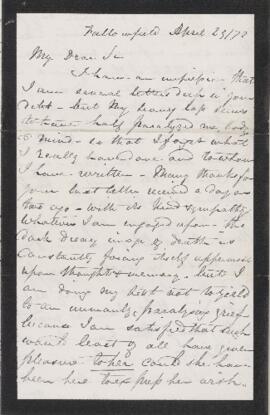 Fallowfield April 29/72
My Dear Sir
I have an impression that
I am several letters deep in your
debt - but my heavy loss seems
to have half paralyzed me body
& mind - so that I forget what
I really have done and to whom
I have written - Many thanks for
your last letter received a day or
two ago - with its kind sympathy
Whatever I am engaged upon - the
dark dreary image of death is
constantly forcing itself uppermost
upon thought & memory. but I
am doing my best not to yield
to an unmanly & paralysing grief
because I am satisfied that such
would least of all have given
pleasure to her could she have
been here to express her wish.